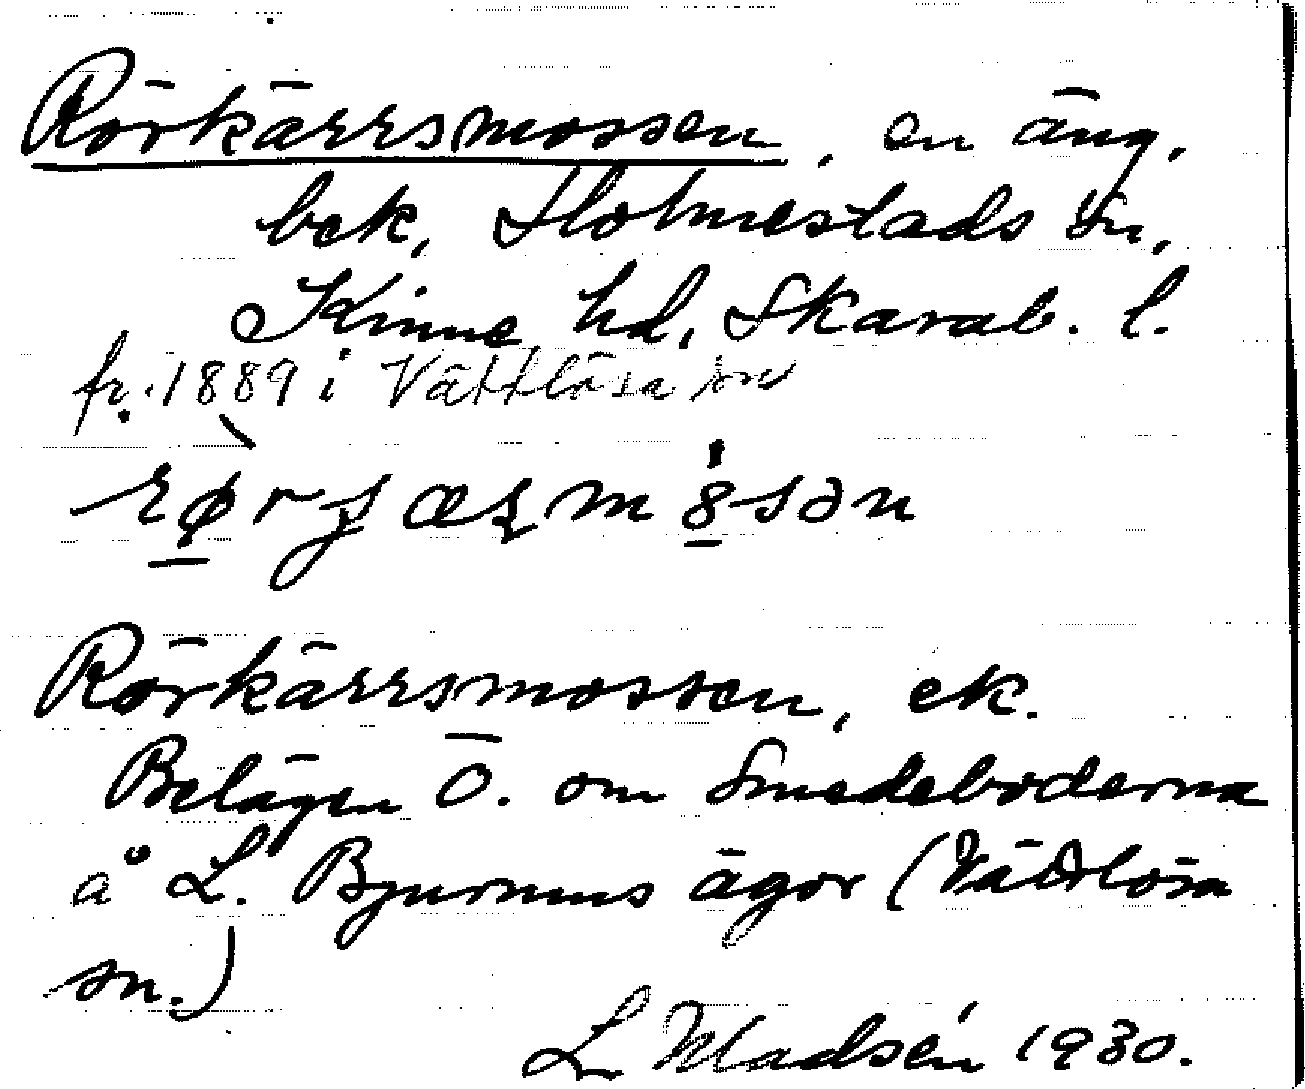 Rörkärrsmossen, en äng,
bek, Holmestads sn,
Kinne hd, Skarab. l.
fr. 1889 i Vättlösa sn
Rörkärrsmossen, ek.
Belägen Ö. om Smedeboderna
å L. Bjurums ägor (Vättlösa
sn.)
L Madsén 1930.